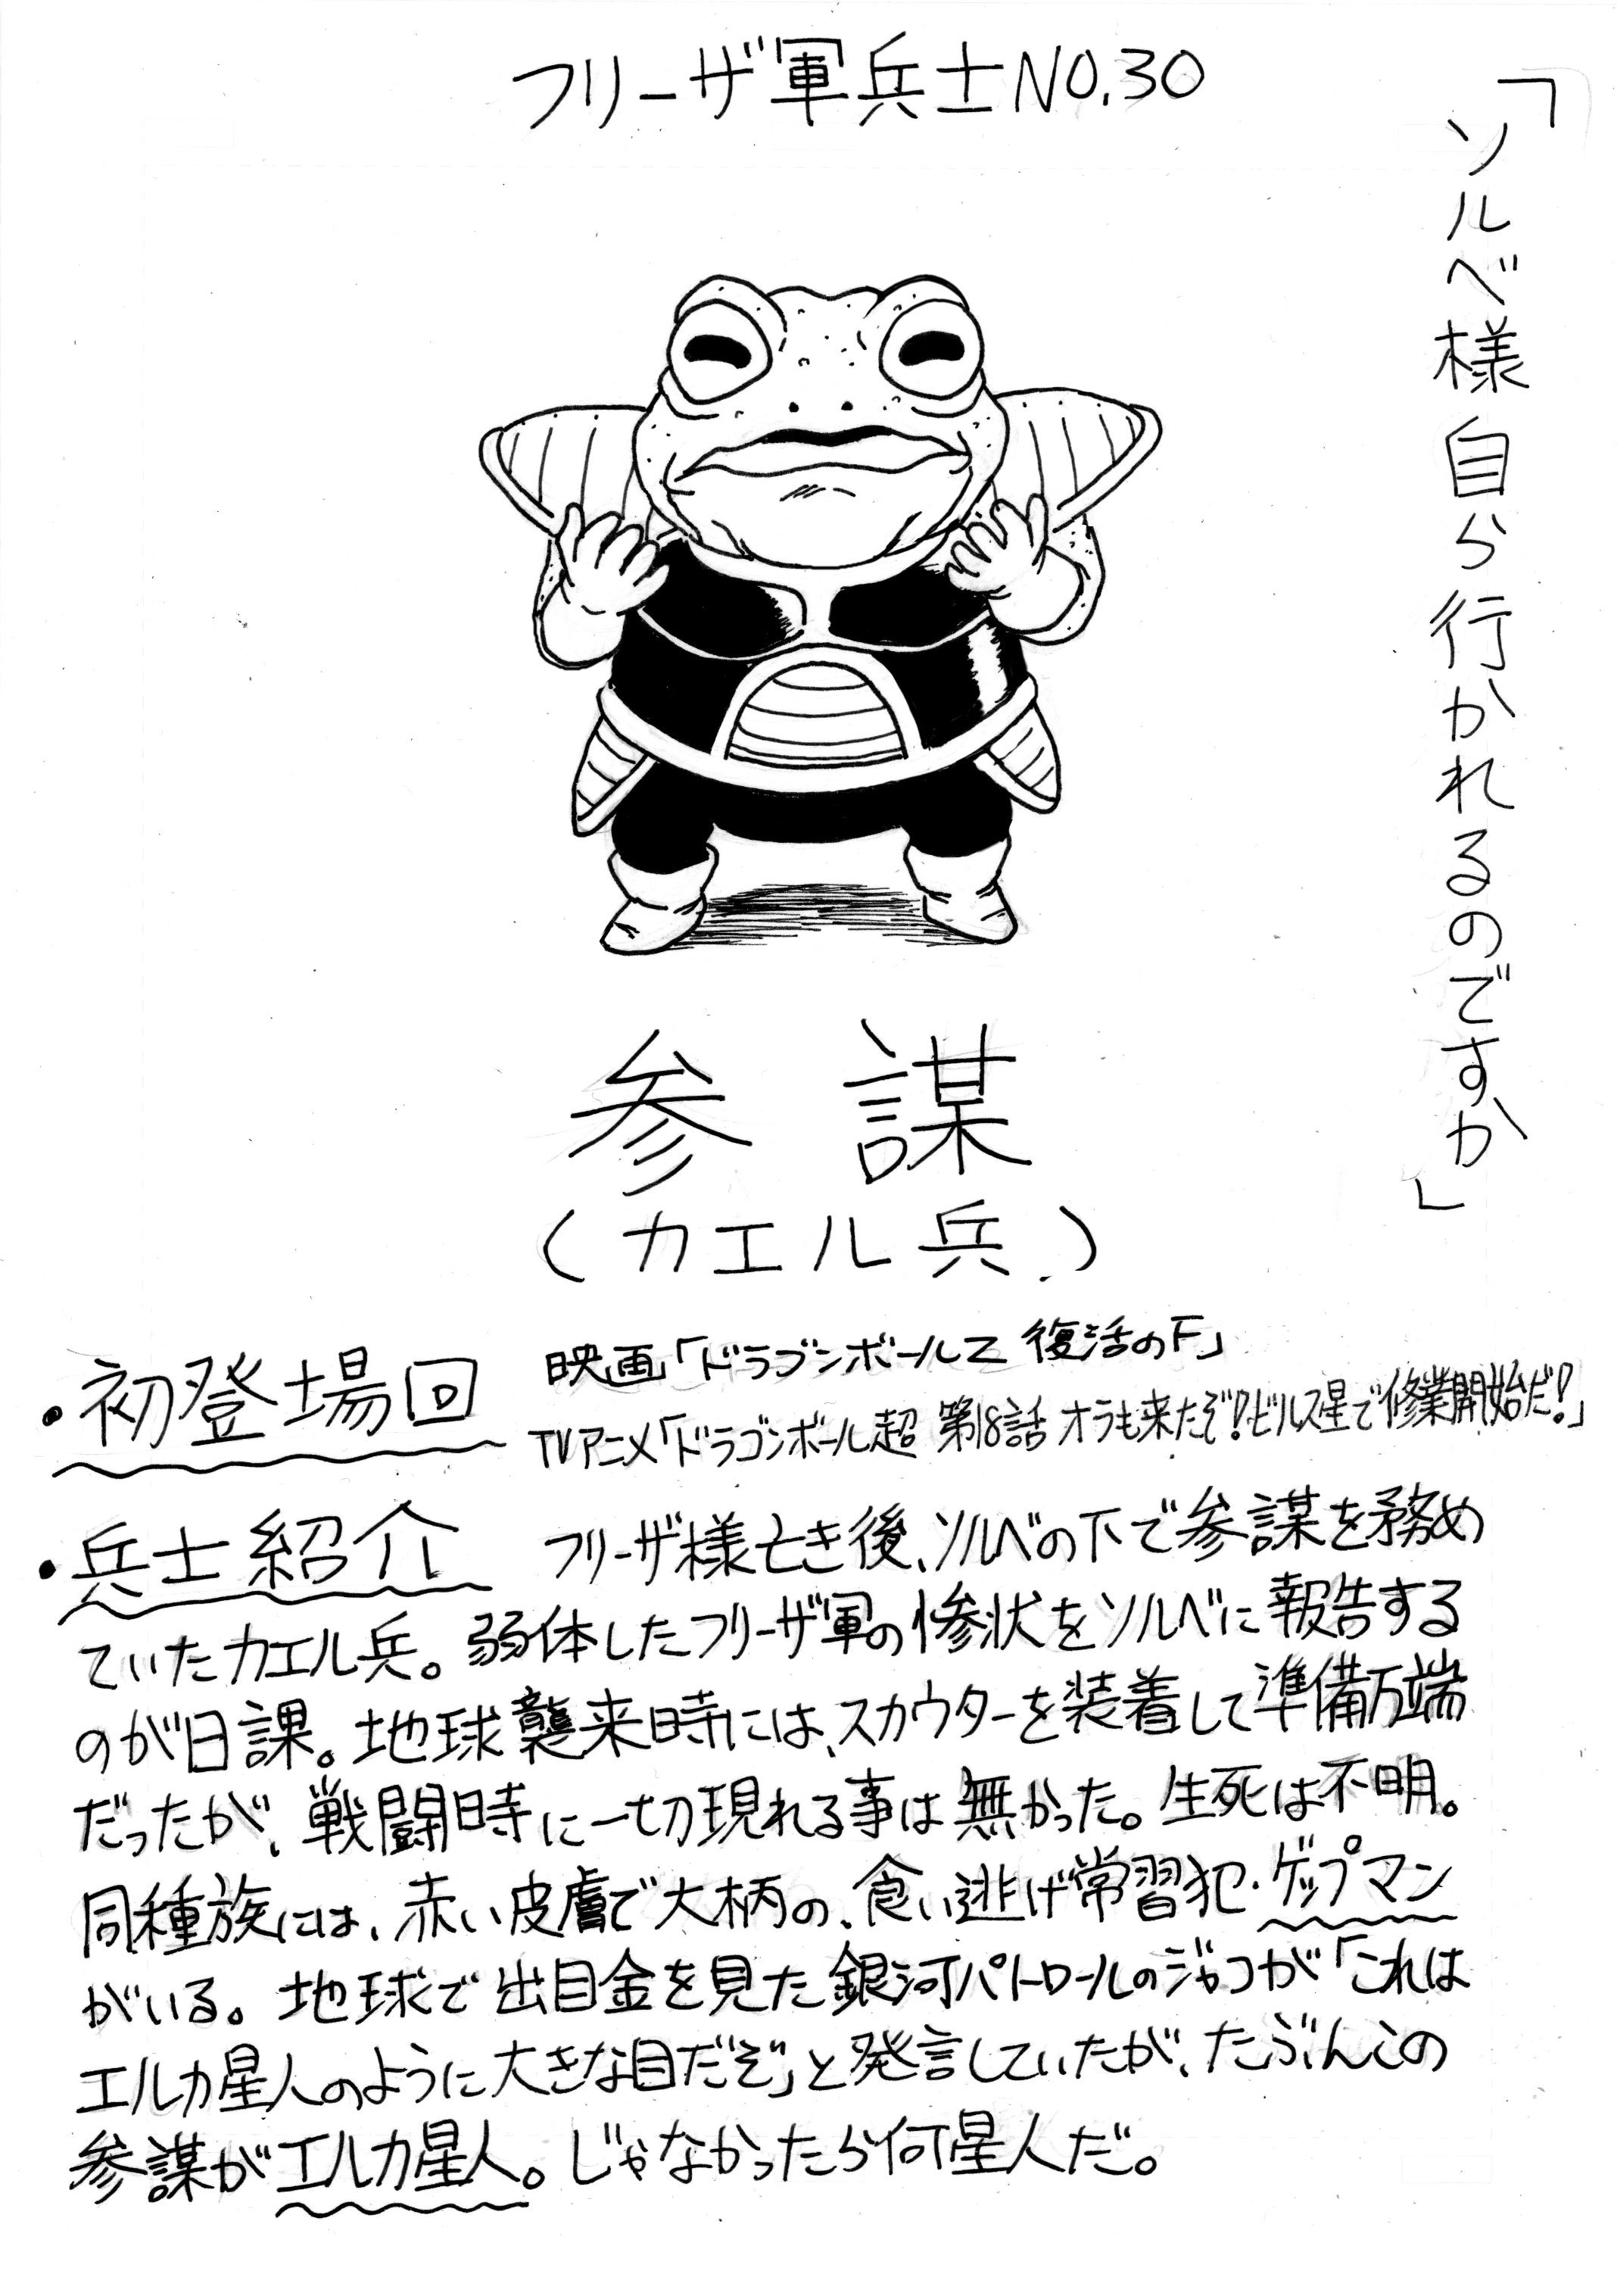 フリーザ軍兵士NO.30
「ソルベ様自ら行かれるのですか」
参謀
(カエル兵)
・初登場回
映画「ドラゴンボールZ 復活のF」
TVアニメ「ドラゴンボール超 第18話 オラも来たぞ!ビルス星で修業開始だ!」
・兵士紹介 フリーザ様亡き後、ソルベの下で参謀を務め
ていたカエル兵。弱体したフリーザ軍の惨状をソルベに報告する
のが日課。地球襲来時には、スカウターを装着して準備万端
だったが、戦闘時に一切現れる事は無かった。生死は不明。
同種族には、赤い皮膚で大柄の、食い逃げ常習犯・ゲップマン
がいる。地球で出目金を見た銀河パトロールのジャコが「これは
エルカ星人のように大きな目だぞ」と発言していたが、たぶんこの
参謀がエルカ星人。じゃなかったら何星人だ。